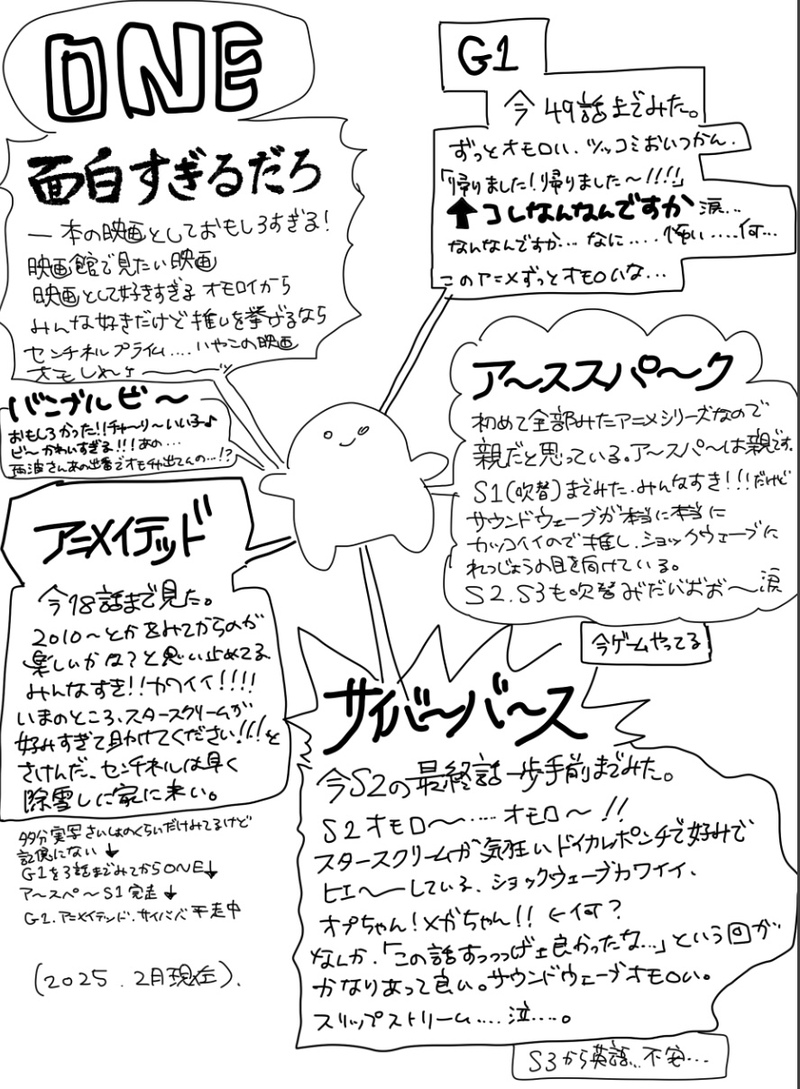 ONE
面白すぎるだろ
一本の映画としておもしろすぎる!
映画館で見たい映画
映画として好きすぎる オモロイから
みんな好きだけど推しを挙げるなら
センチネルプライム....いやこの映画
バンブルビ〜
おもしろかった!!チャ〜リ〜いい子♪
ビ〜かわいすぎる!!!あの...
G1
今49話までみた。
ずっとオモロい、ツッコミおいつかん。
「帰りました!帰りました〜!!!!」
↑コレなんなんですか 涙...
なんなんですか... なに.... 怖い.....何...
このアニメずっとオモロいな...
ア〜ススパ〜ク
初めて全部みたアニメシリーズなので
親だと思っている。ア〜スパ〜は親です。
S1(吹替)までみた、みんなすき!!!だけど
サウンドウェーブが本当に本当に
カッコイイので推し、ショックウェーブに
れつじょうの目を向けている。
S2、S3も吹替みだいおお〜涙
今ゲームやってる
アニメイテッド
今18話まで見た。
2010〜とかをみてからのが
楽しいかな?と思い止めてる
みんなすき!!カワイイ!!!!
いまのところ、スタースクリームが
好みすぎて助けてください!!!と
さけんだ、センチネルは早く
除雪しに家に来い。
サイバ〜バ〜ス
今S2の最終話一歩手前までみた。
S2オモロ〜.....オモロ〜!!
スタースクリームが気狂いドイカレポンチで好みで
ヒエ〜〜している、ショックウェーブカワイイ、
オプちゃん!メガちゃん!! ←何?
なんか、「この話すっっっげェ良かったな...」という回が
かなりあって良い。サウンドウェーブオモロい。
スリップストリーム....泣....。
S3から英語...不安...
実写さいしょのくらいだけみてるけど
記憶にない↓
G1を3話までみてからONE↓
ア〜スパ〜S1完走↓
G1、アニメイテッド、サイババ 平走中
(2025、2月現在)、